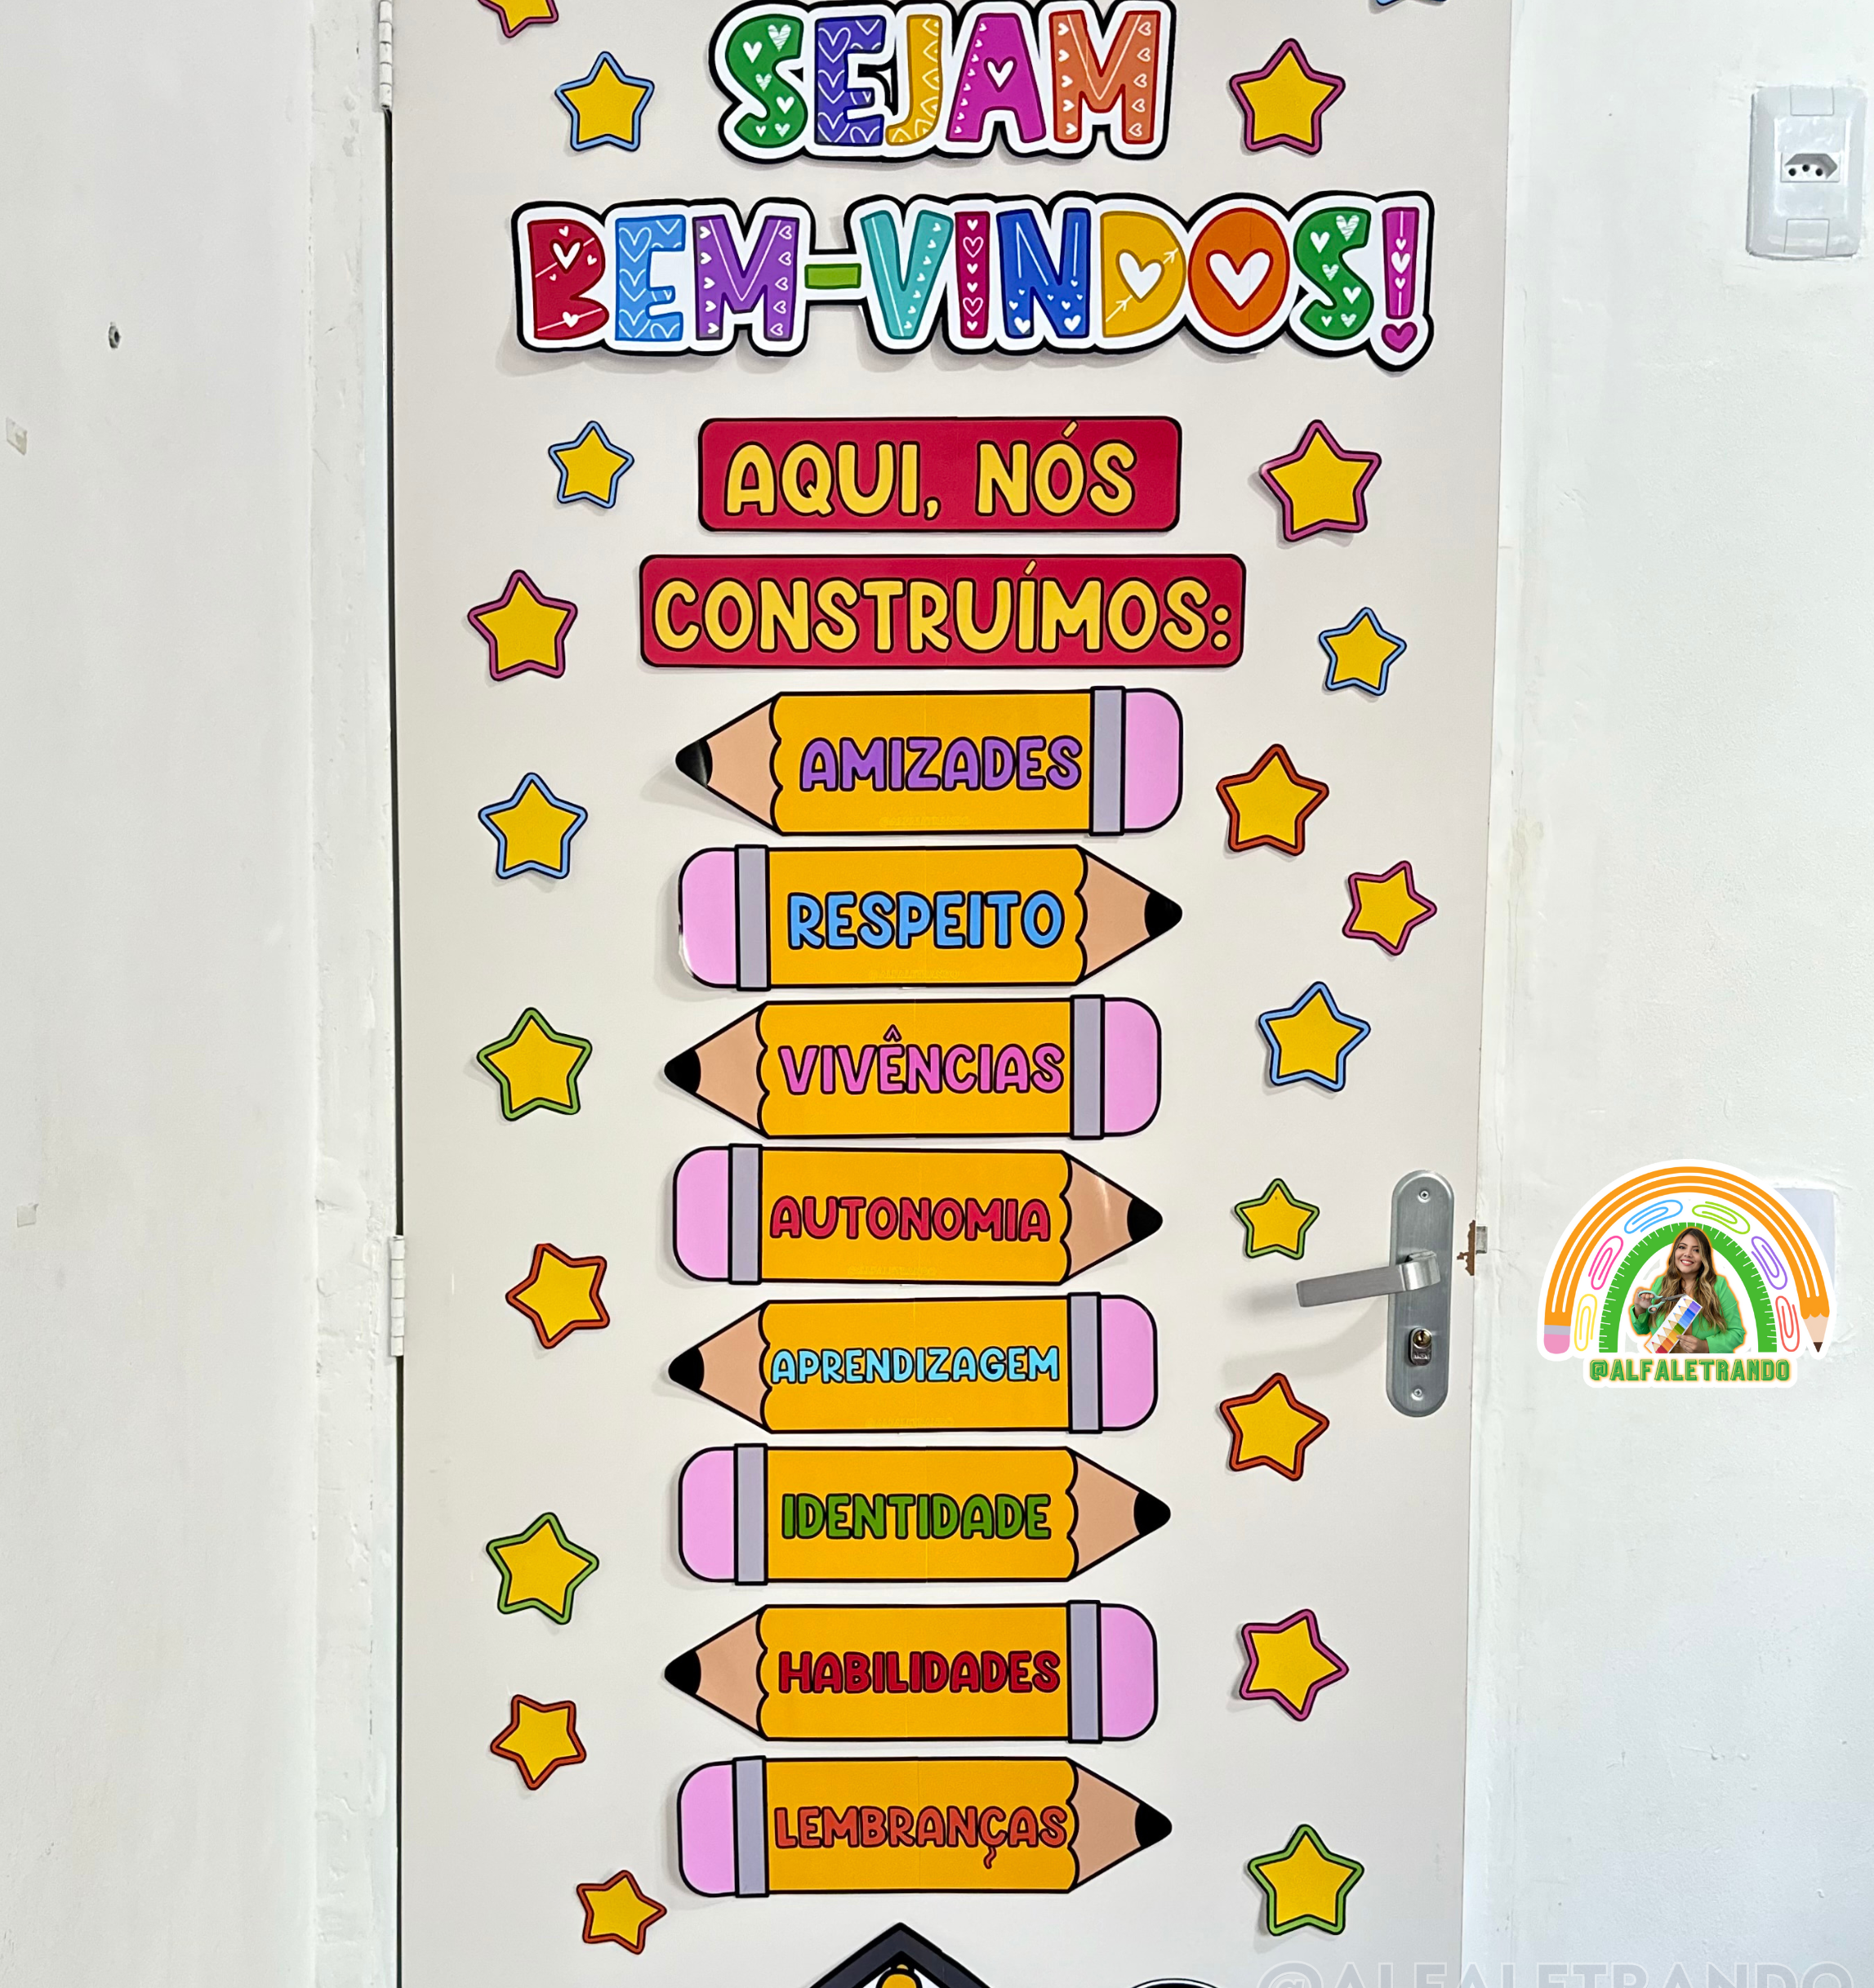 SEJAM
BEM-VINDOS!
AQUI, NÓS
CONSTRUÍMOS:
AMIZADES
RESPEITO
VIVÊNCIAS
AUTONOMIA
APRENDIZAGEM
IDENTIDADE
HABILIDADES
LEMBRANÇAS
@ALFALETRANDO
@ALFALETRANDO